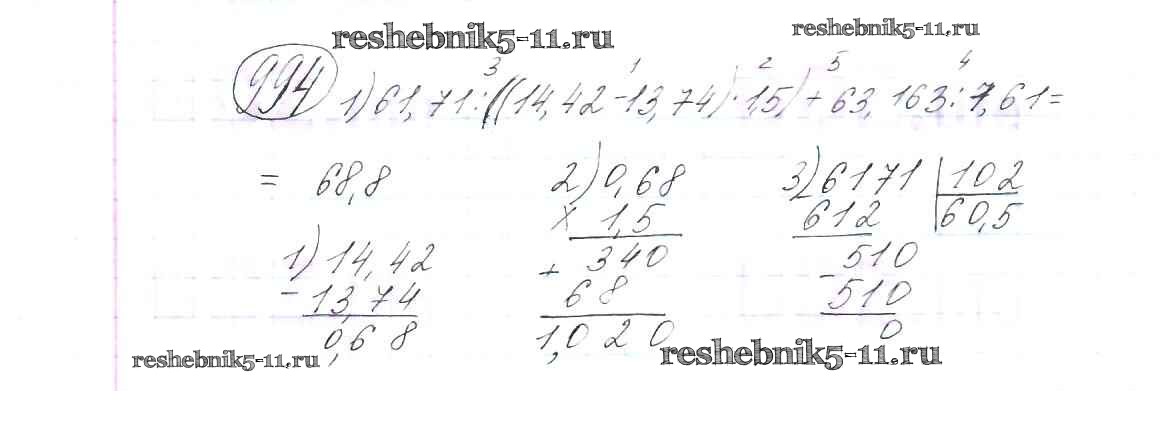 reshebnik5-11.ru
reshebnik5-11.ru
3 1 2 5 4
994 1) 61,71:((14,42-13,74)·1,5)+63,163:7,61=
= 68,8
2) 0,68
× 1,5
340
+ 68
1,020
3) 6171 | 102
612 60,5
510
- 510
0
1) 14,42
- 13,74
0,68
reshebnik5-11.ru
reshebnik5-11.ru